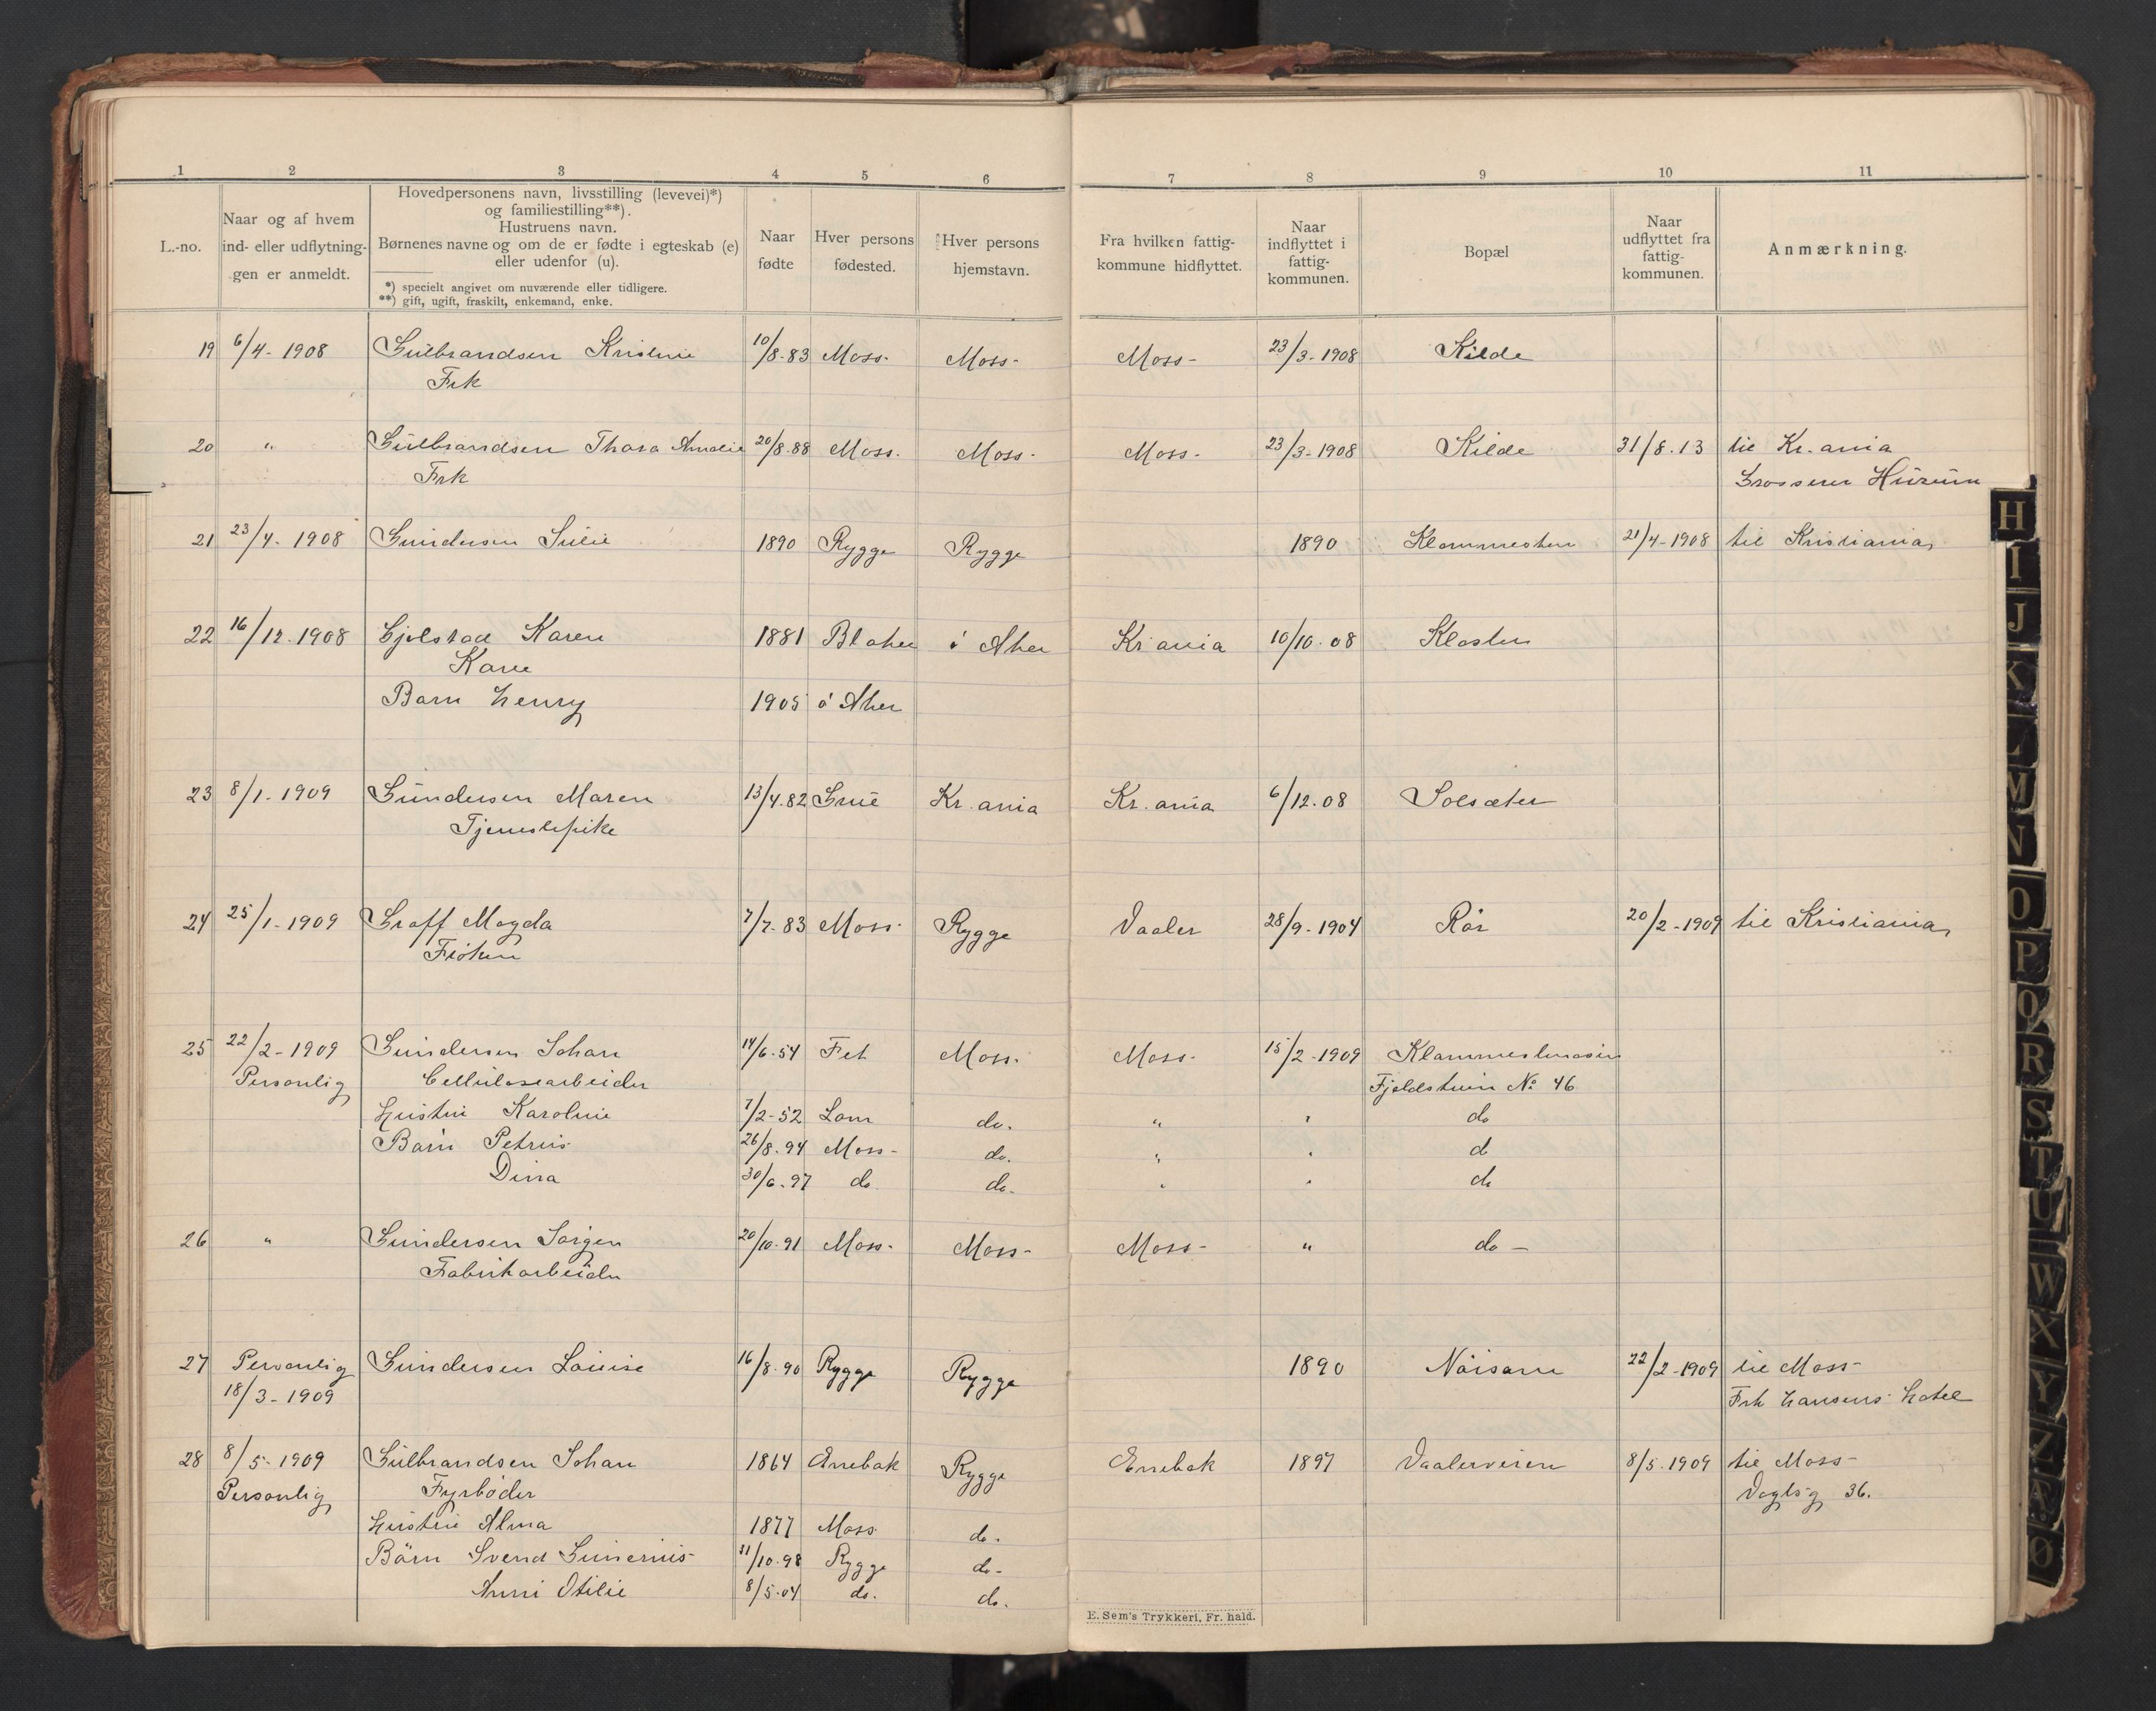 1 2 3 4 5 6 7 8 9 10 11
L.-no.
Naar og af hvem
ind- eller udflytnin-
gen er anmeldt.
Hovedpersonens navn, livsstilling (levevei)*)
og familiestilling**).
Hustruens navn.
Børnenes navne og om de er fødte i egteskab (e)
eller udenfor (u).
*) specielt angivet om nuværende eller tidligere.
**) gift, ugift, fraskilt, enkemand, enke.
Naar
fødte
Hver persons
fødested.
Hver persons
hjemstavn.
Fra hvilken fattig-
kommune hidflyttet.
Naar
indflyttet i
fattig-
kommunen.
Bopæl
Naar
udflyttet fra
fattig-
kommunen.
Anmærkning.
19 6/4- 1908 Gulbrandsen Kristine 10/8-83 Moss- Moss- Moss- 23/3-1908 Kilde
Frk
20 " Gulbrandsen Thora Amalie 20/8-88 Moss. Moss- Moss- 23/3-1908 Kilde 31/8.13 til Kr.ania
Frk Grosserer Huseum
21 23/4- 1908 Gundersen Julie 1890 Rygge Rygge 1890 Klommesten 21/4-1908 til Kristiania
22 16/12-1908 Gjelstad Karen 1881 Kr.ania 10/10-08 Kloster
Kone
Barn Henry 1905
23 8/1-1909 Gundersen Maren 13/4.82 Grue Kr.ania Kr.ania 6/12.08 Solsæter
Tjenestepike
24 25/1-1909 Graff Magda 7/7-83 Moss- Rygge Vaaler 28/9-1904 Rør 20/2-1909 til Kristiania
Frøken
25 22/2-1909 Gundersen Johan 14/6-54 Fet Moss. Moss- 15/2-1909
Personlig Cellulosearbeider Fjeldstuen No 46
Hustru Karoline 7/2-52 Lom do. " " do
Barn Petrus 26/8.94 Moss- do. " " d
Dina 30/6.97 do do- " " do
26 " Gundersen Jørgen 20/10-91 Moss- Moss- Moss- " do -
Fabrikarbeider
27 Personlig Gundersen Louise 16/8-90 Rygge Rygge 1890 Nøisom 22/2-1909 til Moss-
18/3-1909 Frk Hansens Hotel
28 8/5-1909 Gulbrandsen Johan 1864 Enebak Rygge Enebak 1897 Vaalerveien 8/5.1909 til Moss-
Personlig Fyrbøder Vogtsg 36.
Hustru Alma 1877 Moss do.
Børn Svend Gunerius 11/10-98 Rygge do-
Anni Otilie 8/5-04 do. do.
E. Sem's Trykkeri, Fr. hald.
H
I
J
K
L
M
N
O
P
Q
R
S
T
U
W
X
Y
Z
Æ
Ø